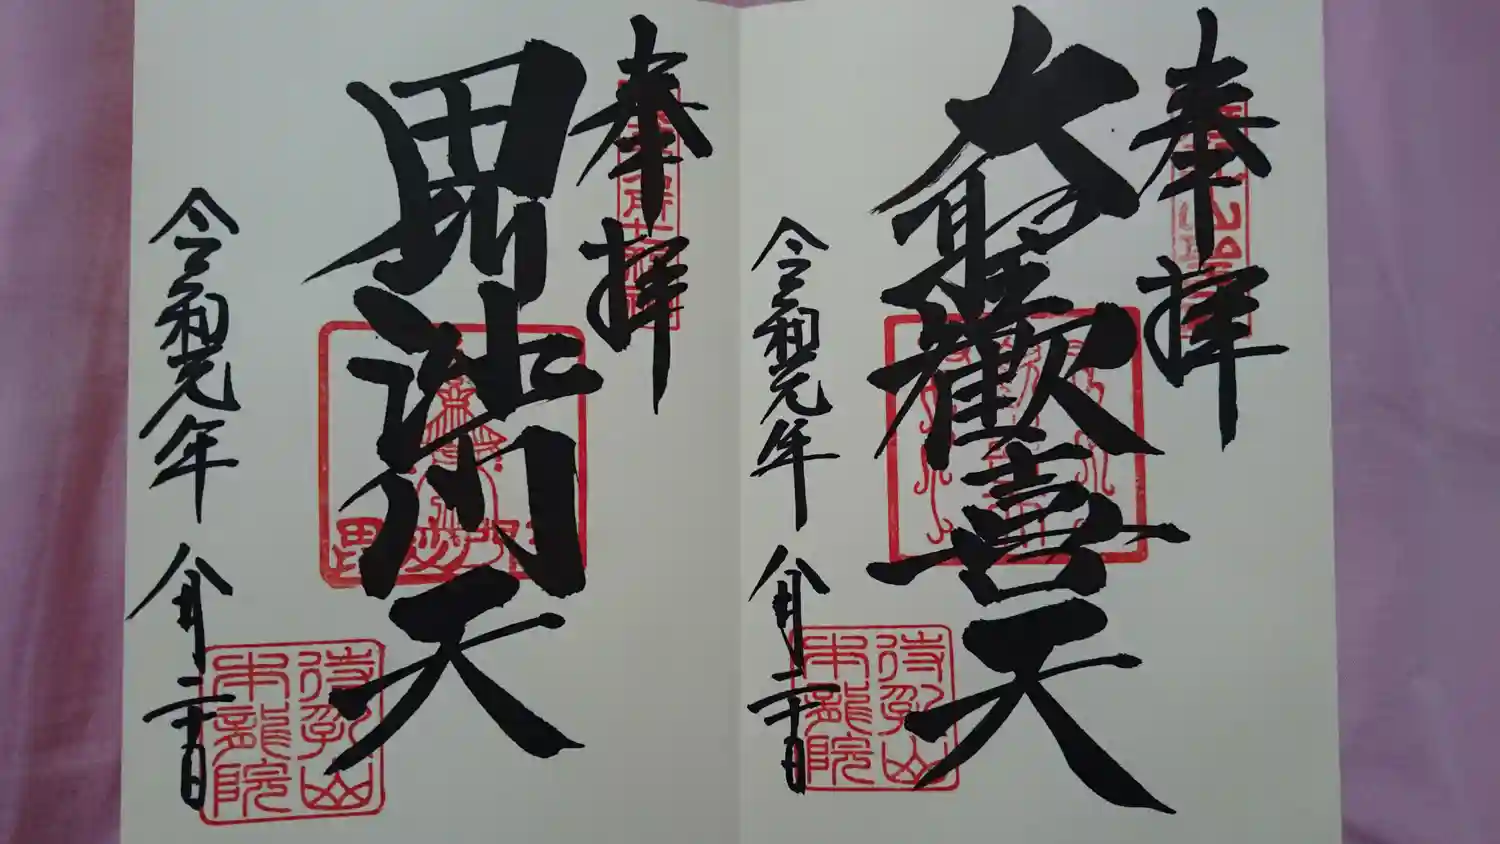 奉拝
大聖歓喜天
令和元年 八月二十日
待乳山
本龍院
奉拝
毘沙門天
令和元年 八月二十日
待乳山
本龍院